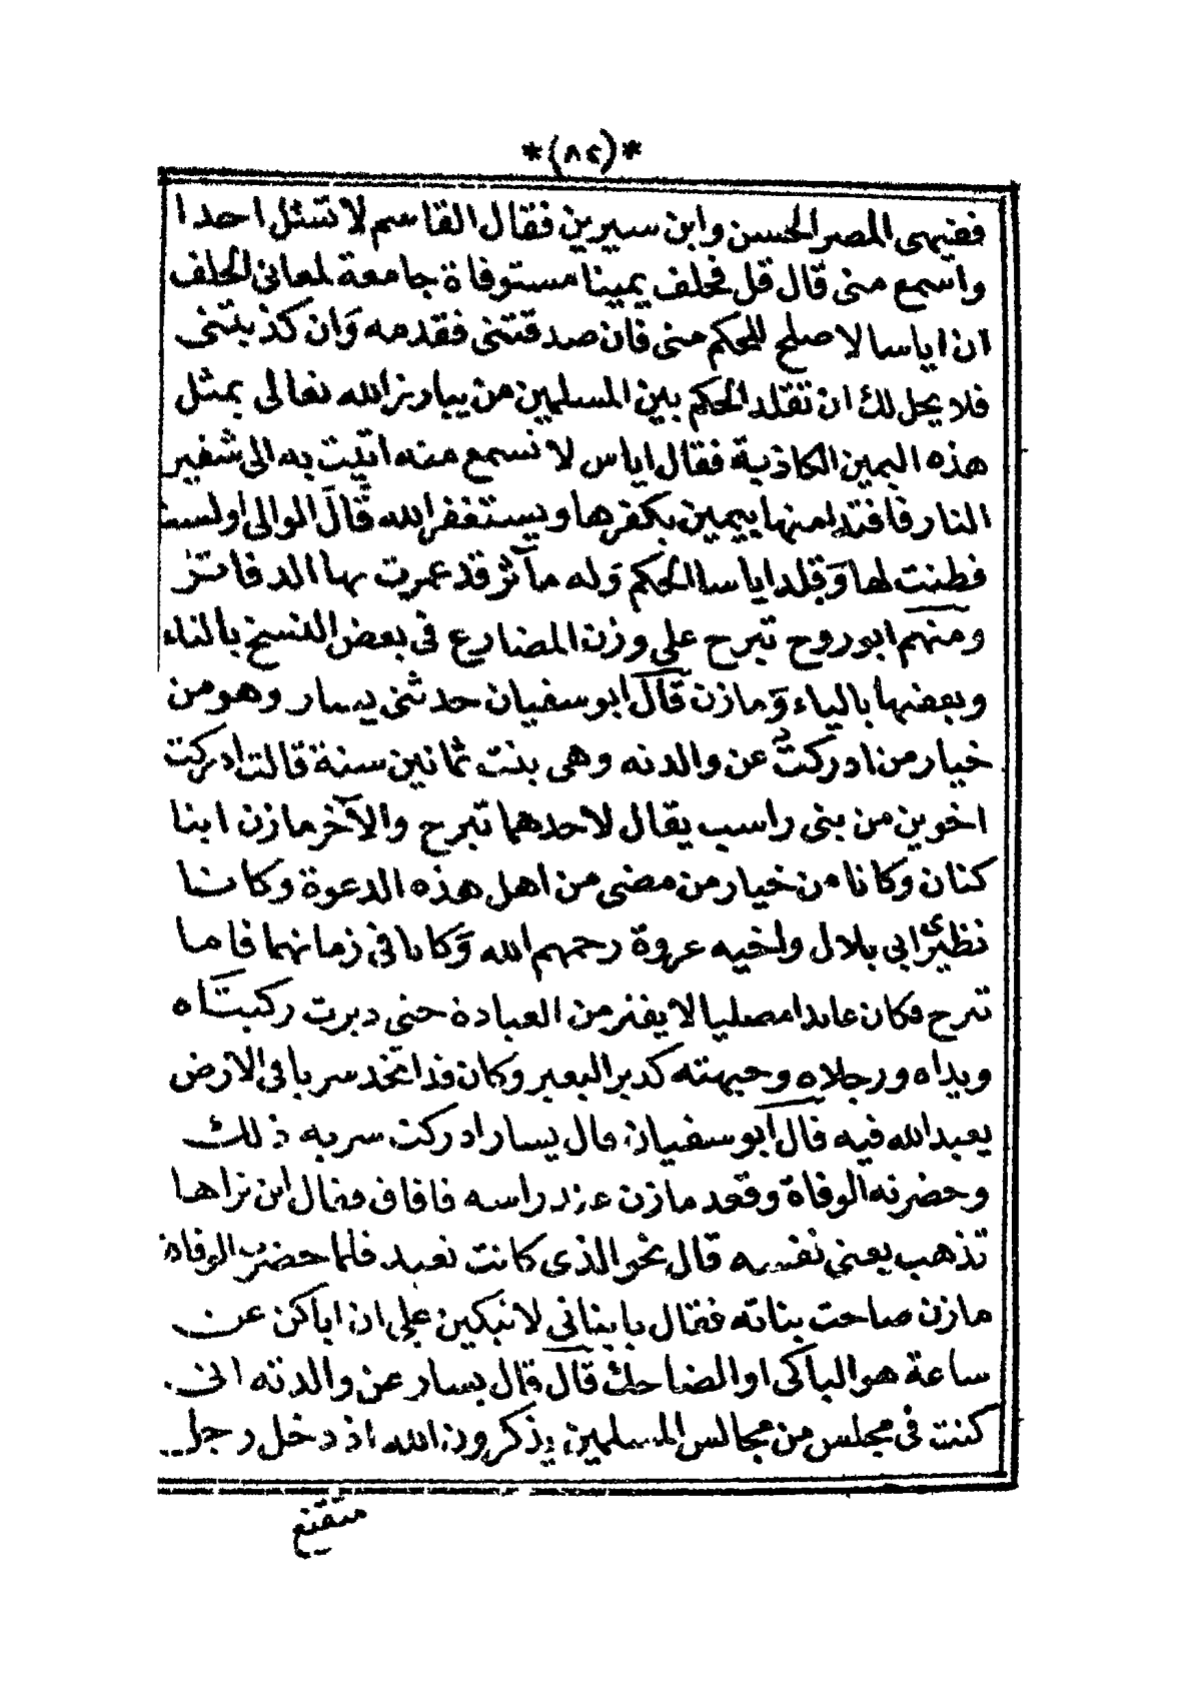 *(٨٢)*
فقيهى المصر الحسن وابن سيرين فقال القاسم لا تسئل احدا
واسمع منى قال قل فحلف يمينا مستوفاة جامعة لمعانى الحلف
ان اياسا لاصلح للحكم منى فان صدقتنى فقدمه وان كذبتنى
فلا يحل لك ان تقلد الحكم بين المسلمين من يبارز الله تعالى بمثل
هذه اليمين الكاذبة فقال اياس لا تسمع منه اتيت به الى شفير
النار فافتدا منها بيمين يكفرها ويستغفر الله قال الوالى اولست
فطنت لها وقلد اياسا الحكم وله مآثر قد عمرت بها الدفاتر
ومنهم ابو روح تبرح على وزن المضارع فى بعض النسخ بالتاء
وبعضها بالياء ومازن قال ابو سفيان حدثنى يسار وهو من
خيار من ادركت عن والدته وهى بنت ثمانين سنة قالت ادركت
اخوين من بنى راسب يقال لاحدهما تبرح والآخر مازن ابنا
كنان وكانا من خيار من مضى من اهل هذه الدعوة وكانا
نظيرى ابى بلال واخيه عروة رحمهم الله وكانا فى زمانهما فاما
تبرح فكان عابدا مصليا لا يفتر من العبادة حتى دبرت ركبتاه
ويداه ورجلاه وجبهته كدبر البعير وكان قد اتخذ سربا فى الارض
يعبد الله فيه قال ابو سفيان قال يسار ادركت سربه ذلك
وحضرته الوفاة وقعد مازن عند راسه فافاق فقال اين تراها
تذهب يعنى نفسه قال نحو الذى كانت تعبد فلما حضرت الوفاة
مازن صاحت بناته فقال يا بناتى لا تبكين على ان اباكن عن
ساعة هو الباكى او الضاحك قال قال يسار عن والدته انى
كنت فى مجلس من مجالس المسلمين يذكرون الله اذ دخل رجل
متقنع